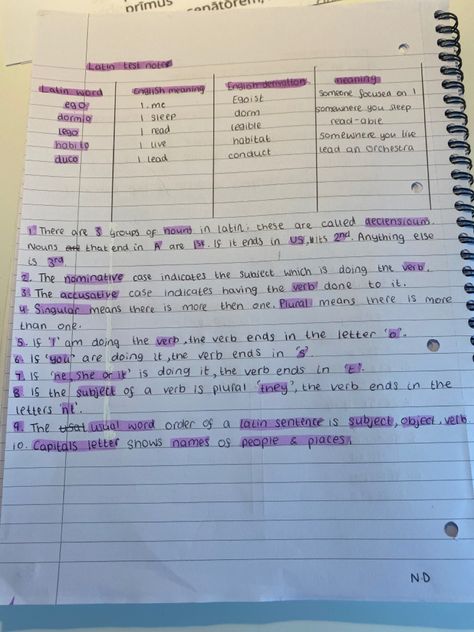 prīmus
senātōrem,
Latin test notes
Latin word English meaning English derivation meaning
ego I, me Egoist someone focused on I
dormio I sleep dorm somewhere you sleep
lego I read legible read-able
habito I live habitat somewhere you live
duco I lead conduct lead an orchestra
1. There are 3 groups of nouns in latin, these are called declensiouns.
Nouns are that end in A are 1st. If it ends in us, its 2nd. Anything else
is 3rd
2. The nominative case indicates the subject which is doing the verb.
3. The accusative case indicates having the verb done to it.
4. Singular means there is more then one. Plural means there is more
than one.
5. If 'I' am doing the verb, the verb ends in the letter 'o'.
6. If 'you' are doing it, the verb ends in 's'.
7. If 'he, she or it' is doing it, the verb ends in 't'.
8. If the subject of a verb is plural 'they', the verb ends in the
letters 'nt'.
9. The usual word order of a latin sentence is subject, object, verb
10. Capitals letter shows names of people & places.
N.D